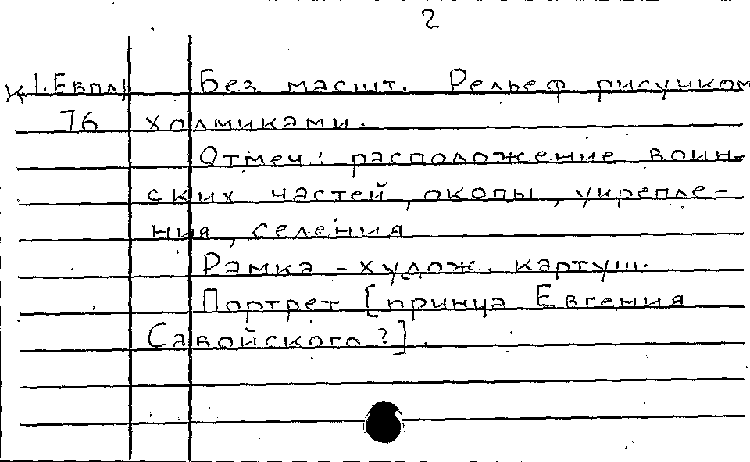 2
К 1-Евпл Без масшт. Рельеф рисунком
76 холмиками.
Отмеч.: расположение воин-
ских частей, окопы, укрепле-
ния, селения
Рамка - худож. картуш.
Портрет [принца Евгения
Савойского?].